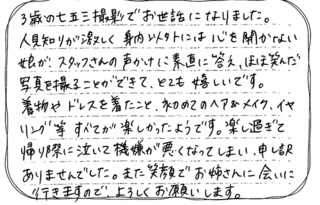 3歳の七五三撮影でお世話になりました。
人見知りが激しく身内以外には心を開かない
娘が、スタッフさんの声かけに素直に答え、ほぼ笑んだ
写真を撮ることができて、とても嬉しいです。
着物やドレスを着たこと、初めてのヘア&メイク、イヤ
リング等すべてが楽しかったようです。楽し過ぎて
帰り際に泣いて機嫌が悪くなってしまい、申し訳
ありませんでした。また笑顔でお姉さんに会いに
行きますので、よろしくお願いします。